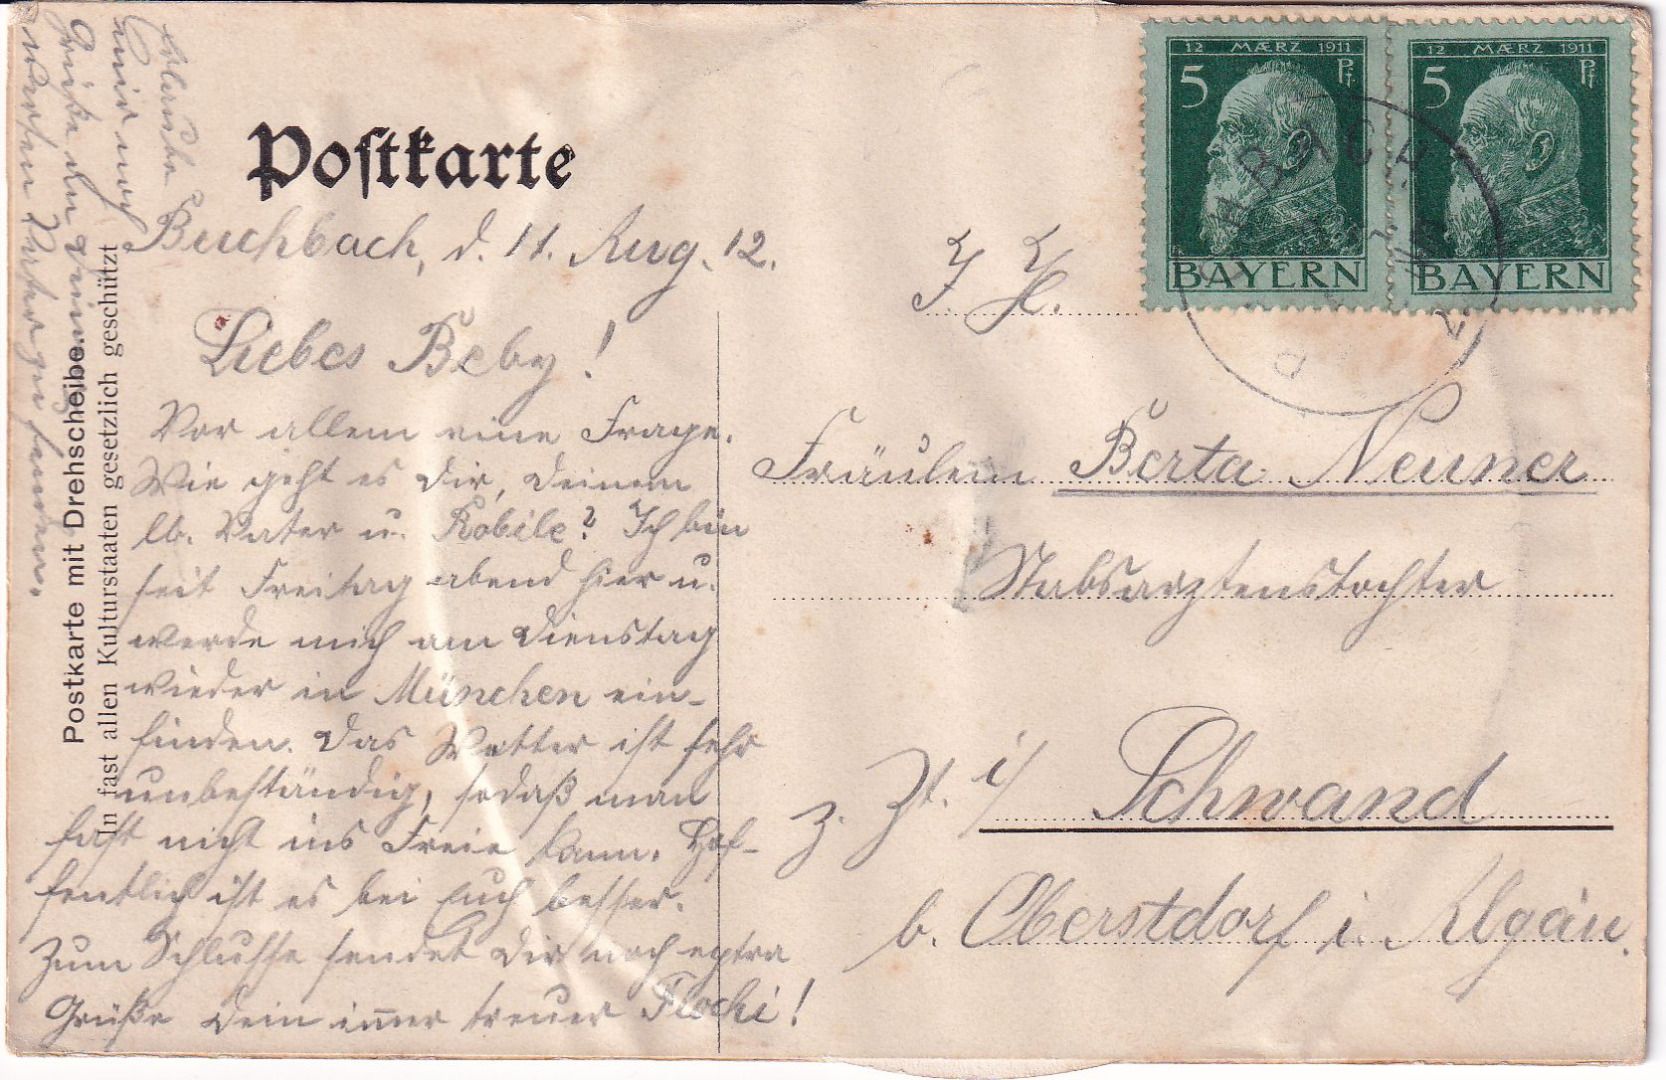 Postkarte
Buchbach, d. 11. Aug. 12.
Liebes Beby!
Vor allem eine Frage.
Wie geht es Dir, Deinem
lb. Vater u. Robile? Ich bin
seit Freitag abend hier u.
werde mich am Dienstag
wieder in München ein-
finden. Das Wetter ist sehr
unbeständig, sodaß man
fast nicht ins Freie kann. Hof-
fentlich ist es bei Euch besser.
Zum Schlusse sendet Dir noch extra
Grüße Dein immer treuer Flochi!
Erlaube
mir noch
Grüße an Deinen
werten Vater zu senden.
Postkarte mit Drehscheibe.
In fast allen Kulturstaaten gesetzlich geschützt
12 MÆRZ 1911
5 Pf
BAYERN
12 MÆRZ 1911
5 Pf
BAYERN
BUCHBACH
I. H.
Fräulein Berta Neuner
Stabsarztenstochter
z. Zt. i/ Schwand
b. Oberstdorf i. Algäu.